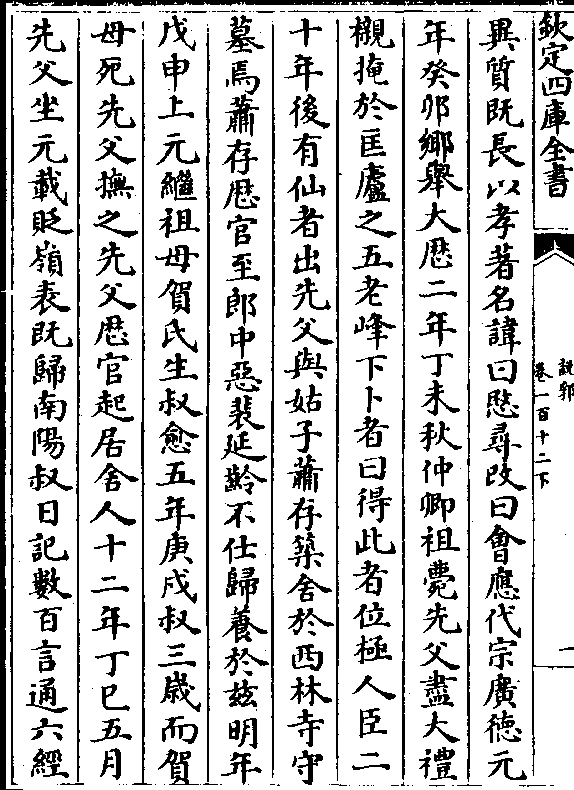 欽定四庫全書
説郛
卷一百十二下
一
異質既長以孝著名諱曰愍尋改曰會應代宗廣德元
年癸卯鄉舉大厯二年丁未秋仲卿祖薨先父盡大禮
櫬掩於匡廬之五老峰下卜者曰得此者位極人臣二
十年後有仙者出先父與姑子蕭存築舍於西林寺守
墓焉蕭存厯官至郎中惡裴延齡不仕歸養於兹明年
戊申上元繼祖母賀氏生叔愈五年庚戍叔三嵗而賀
母死先父撫之先父厯官起居舍人十二年丁巳五月
先父坐元載貶嶺表既歸南陽叔日記數百言通六經